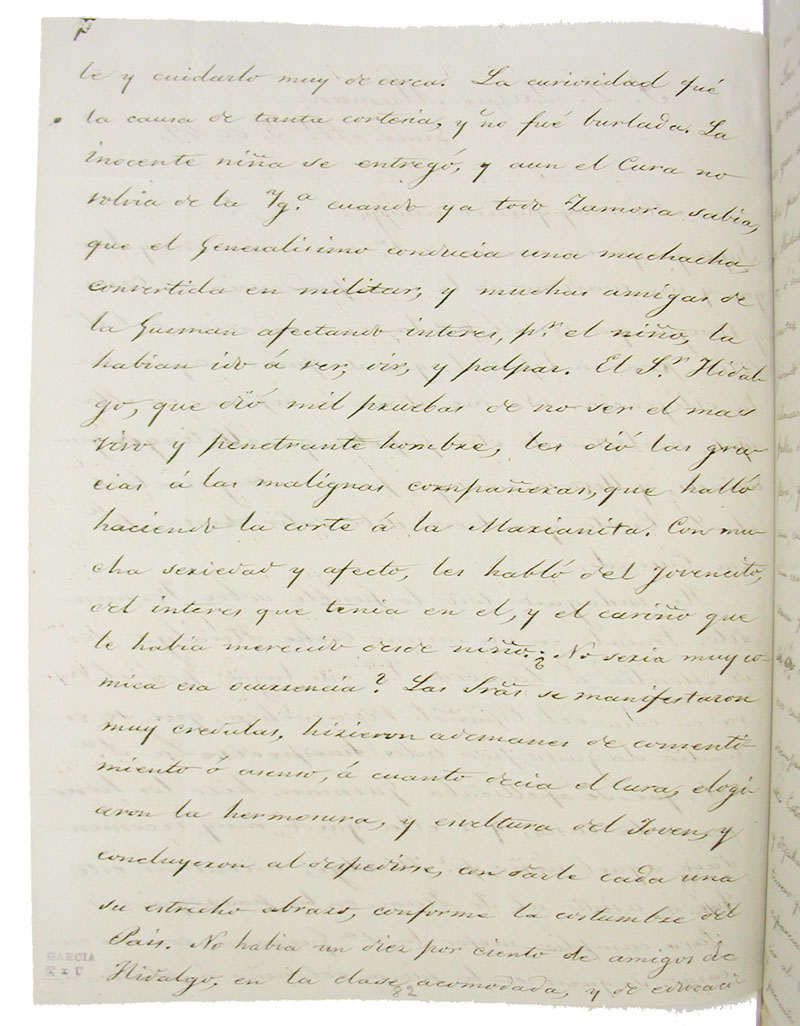 le y cuidarlo muy de cerca. La curiosidad qué
la causa de tanta corteria, y no fué burlada. La
inocente niña se entregó, y aun el Cura no
volvia de la Yg.ª cuando ya todo Zamora sabia,
que el Generalisimo conducia una muchacha,
convertida en militar, y muchas amigas de
la Gusman afectando interes, p.r el niño, la
habian ido á ver, oir, y palpar. El S.r Hidal
go, que dió mil pruebas de no ser el mas
vivo y penetrante hombre, les dió las gra
cias á las malignas compañeras, que halló
haciendo la corte á la Marianita. Con mu
cha seriedad y afecto, les habló del Jovencito,
del interes que tenia en el, y el cariño que
le habia merecido desde niño. ¿No seria muy co
mica esa ocurrencia? Las Srãs se manifestaron
muy credulas, hizieron ademanes de consenti
miento ó asenso, á cuanto decia el Cura, elogi
aron la hermosura, y esveltura del Joven, y
concluyeron al despedirse, con darle cada una
su estrecho abrazo, conforme la costumbre del
Pais. No habia un diez por ciento de amigos de
Hidalgo, en la clase acomodada, y de educaci
GARCIA
82